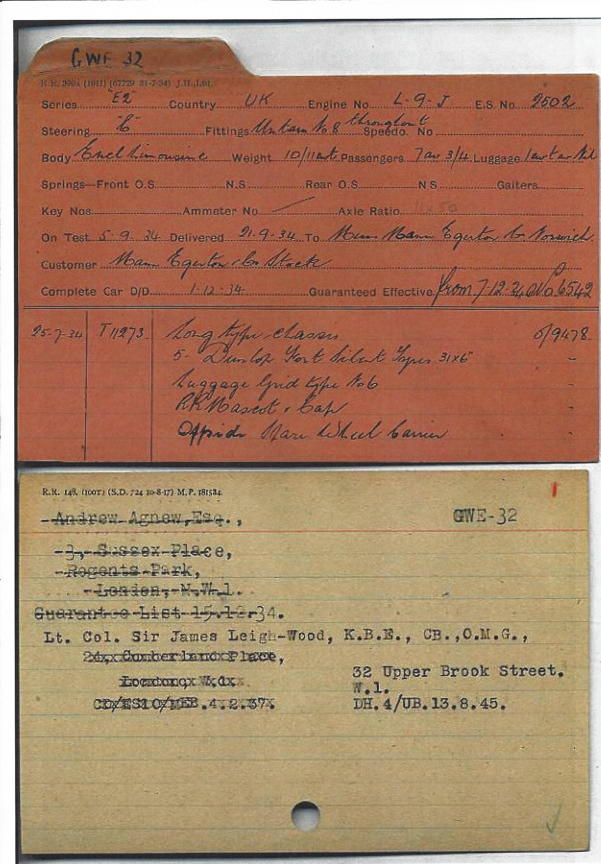 GWE 32
R.R. 390A (1911) (67729 31-7-34) J.H.,Ltd.
Series "E2" Country UK Engine No L-9-J E.S. No 9502
Steering "C" Fittings No 8 throughout Speedo. No
Body Encl Limousine Weight 10/11 cwt Passengers 7 or 3/4 Luggage 1 cwt or Nil
Springs—Front O.S N.S. Rear O.S N S. Gaiters
Key Nos Ammeter No / Axle Ratio 11x50
On Test 5.9.34 Delivered 21.9.34 To Mess Mann Egerton Co Norwich
Customer Mann Egerton & Co Stock
Complete Car D/D 1-12-34 Guaranteed Effective from 7-12-34
25-7-34 T11273 Long type chassis
5- Dunlop Fort Silent Tyres 31x6 -
Luggage Grid type No6 -
RR Mascot & Cap -
Offside Spare Wheel Carrier -
R.R. 148. (100T) (S.D. 724 10-8-17) M.P. 181584.
1
Andrew Agnew,Esq., GWE-32
3, Sussex Place,
Regents Park,
London, N.W.1.
Guarantee List 15.12.34.
Lt. Col. Sir James Leigh-Wood, K.B.E., CB.,O.M.G.,
Cumberland Place,
London, W.1.
32 Upper Brook Street.
W.1.
4.2.37.
DH.4/UB.13.8.45.